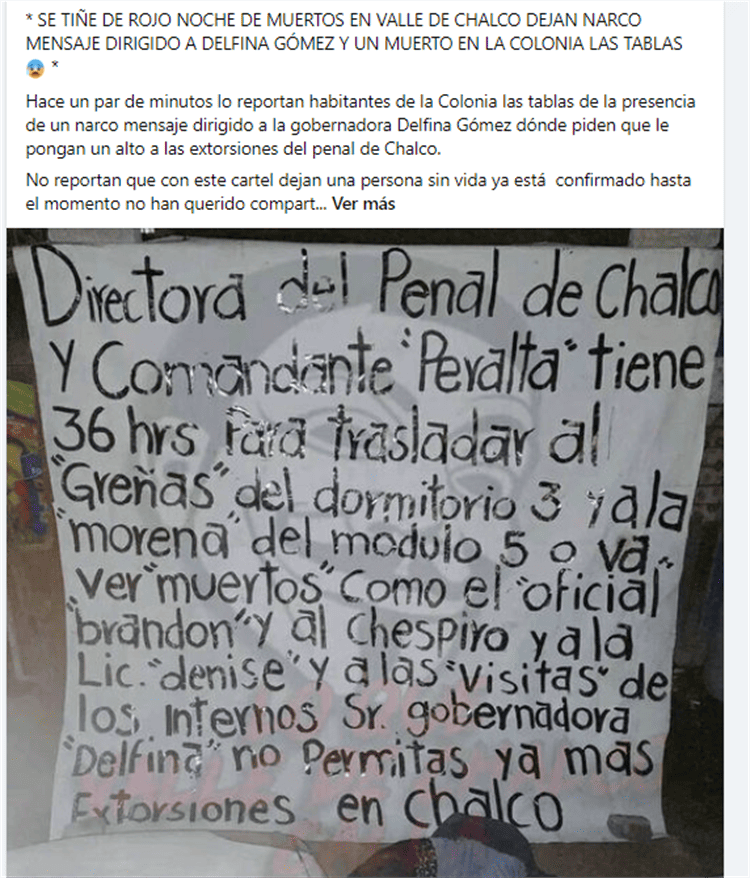 * SE TIÑE DE ROJO NOCHE DE MUERTOS EN VALLE DE CHALCO DEJAN NARCO
MENSAJE DIRIGIDO A DELFINA GÓMEZ Y UN MUERTO EN LA COLONIA LAS TABLAS
😰 *
Hace un par de minutos lo reportan habitantes de la Colonia las tablas de la presencia
de un narco mensaje dirigido a la gobernadora Delfina Gómez dónde piden que le
pongan un alto a las extorsiones del penal de Chalco.
No reportan que con este cartel dejan una persona sin vida ya está confirmado hasta
el momento no han querido compart... Ver más
Directora del Penal de Chalco
Y Comandante "Peralta" tiene
36 hrs Para trasladar al
"Greñas" del dormitorio 3 y a la
"morena" del modulo 5 o va
ver "muertos" Como el "oficial
brandon" y al Chespiro y a la
Lic. "denise" Y a las "Visitas" de
los Internos Sr. gobernadora
"Delfina" no Permitas ya mas
Extorsiones en Chalco